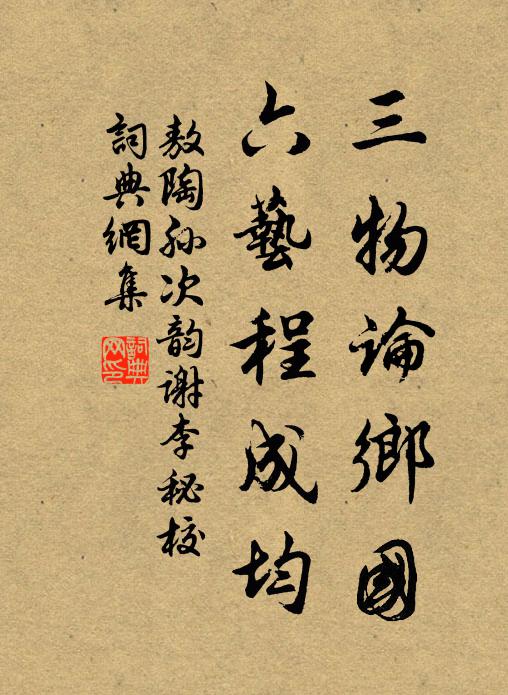 三物論鄉國
六藝程成均
敖陶孫次韵謝李秘校
詞典網集
詞典网印